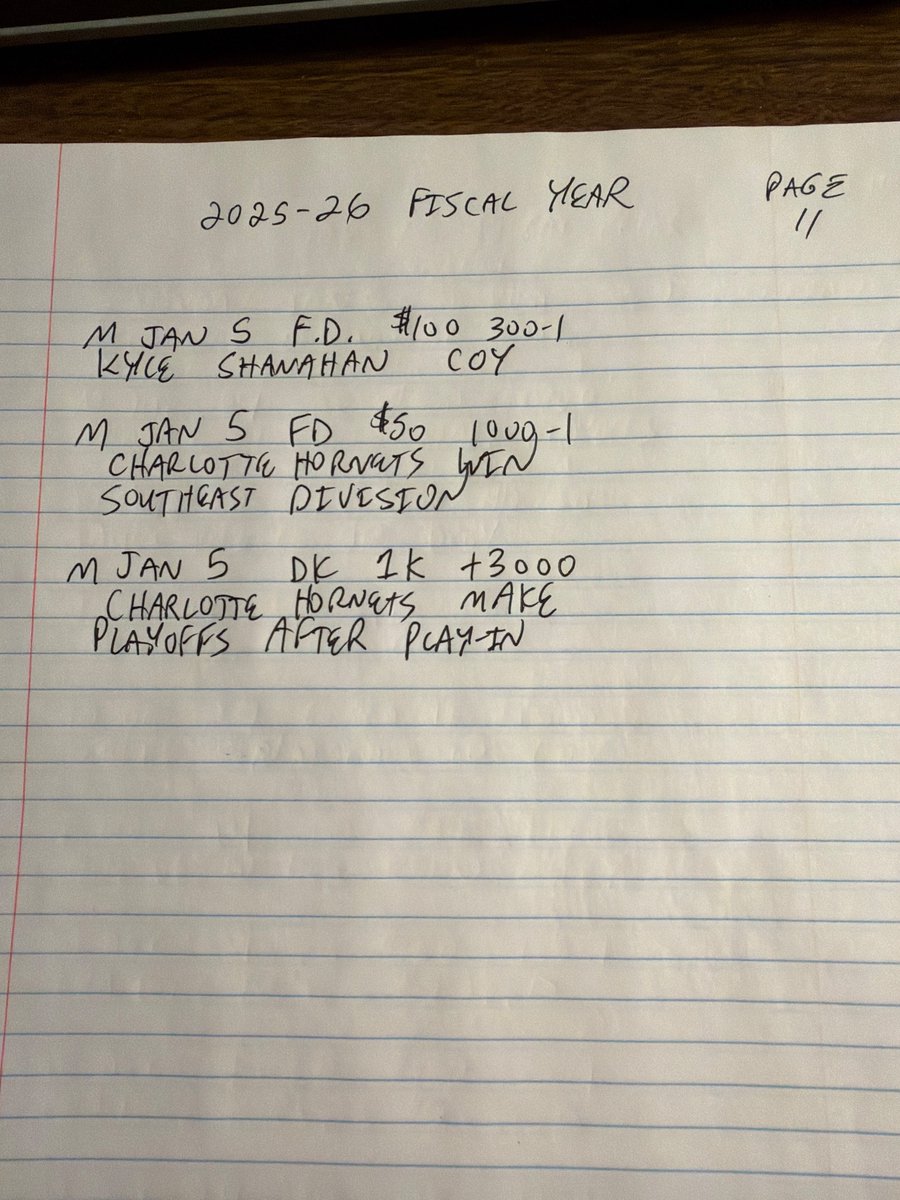 2025-26 FISCAL YEAR PAGE 11
M JAN 5 F.D. $100 300-1
KYLE SHANAHAN COY
M JAN 5 FD $50 1000-1
CHARLOTTE HORNETS WIN
SOUTHEAST DIVISION
M JAN 5 DK 1K +3000
CHARLOTTE HORNETS MAKE
PLAYOFFS AFTER PLAY-IN